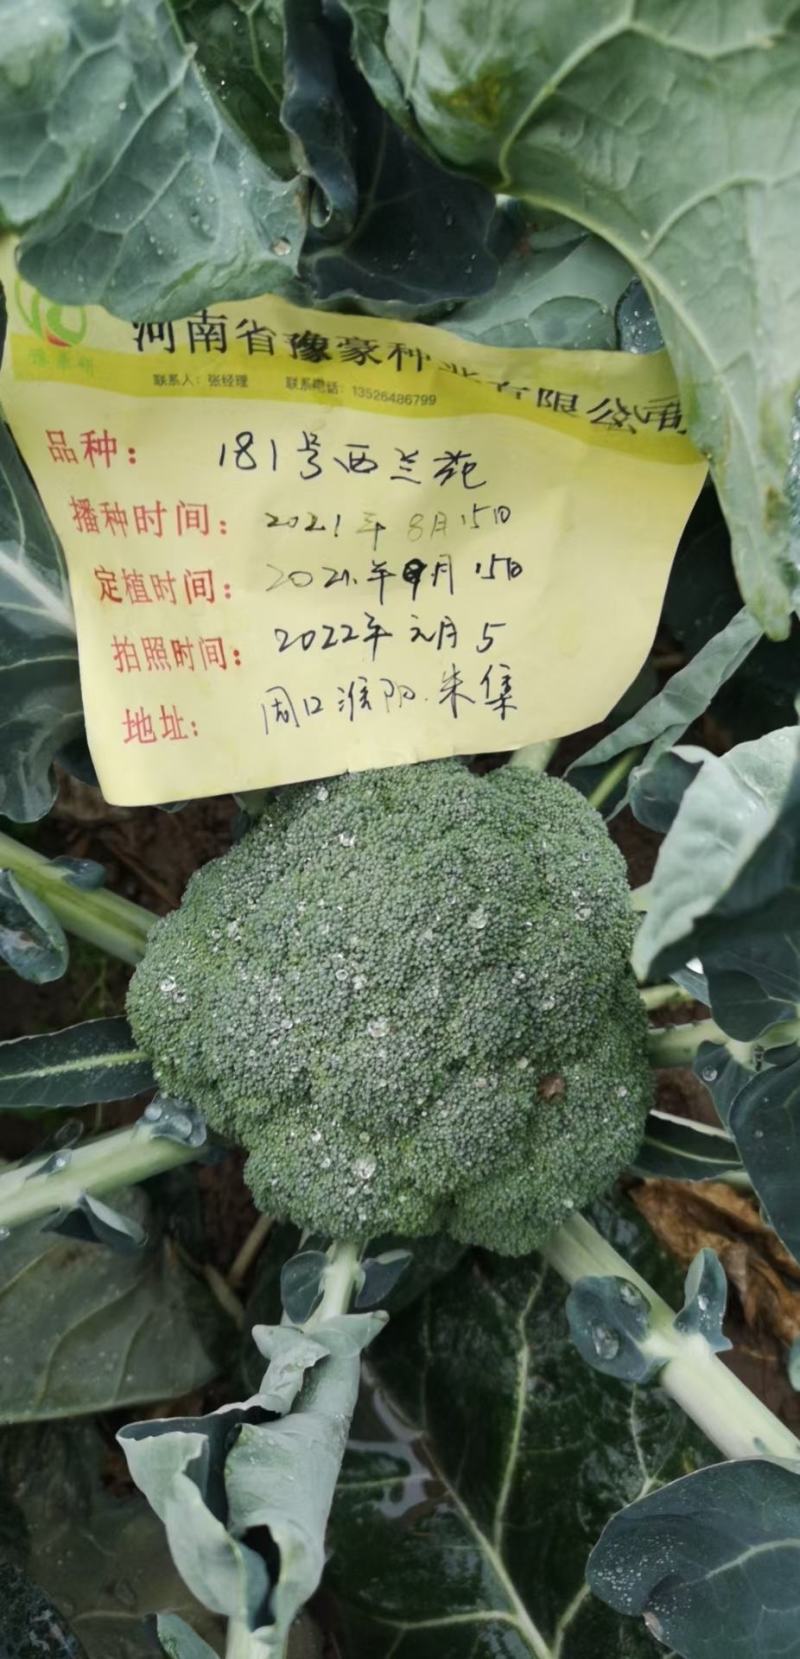 河南省豫豪种业有限公司
联系人：张经理 联系电话：13526486799
品种： 181号西兰苑
播种时间： 2021年8月15日
定植时间： 2021.年9月15日
拍照时间： 2022年元月5
地址： 周口淮阳.朱集